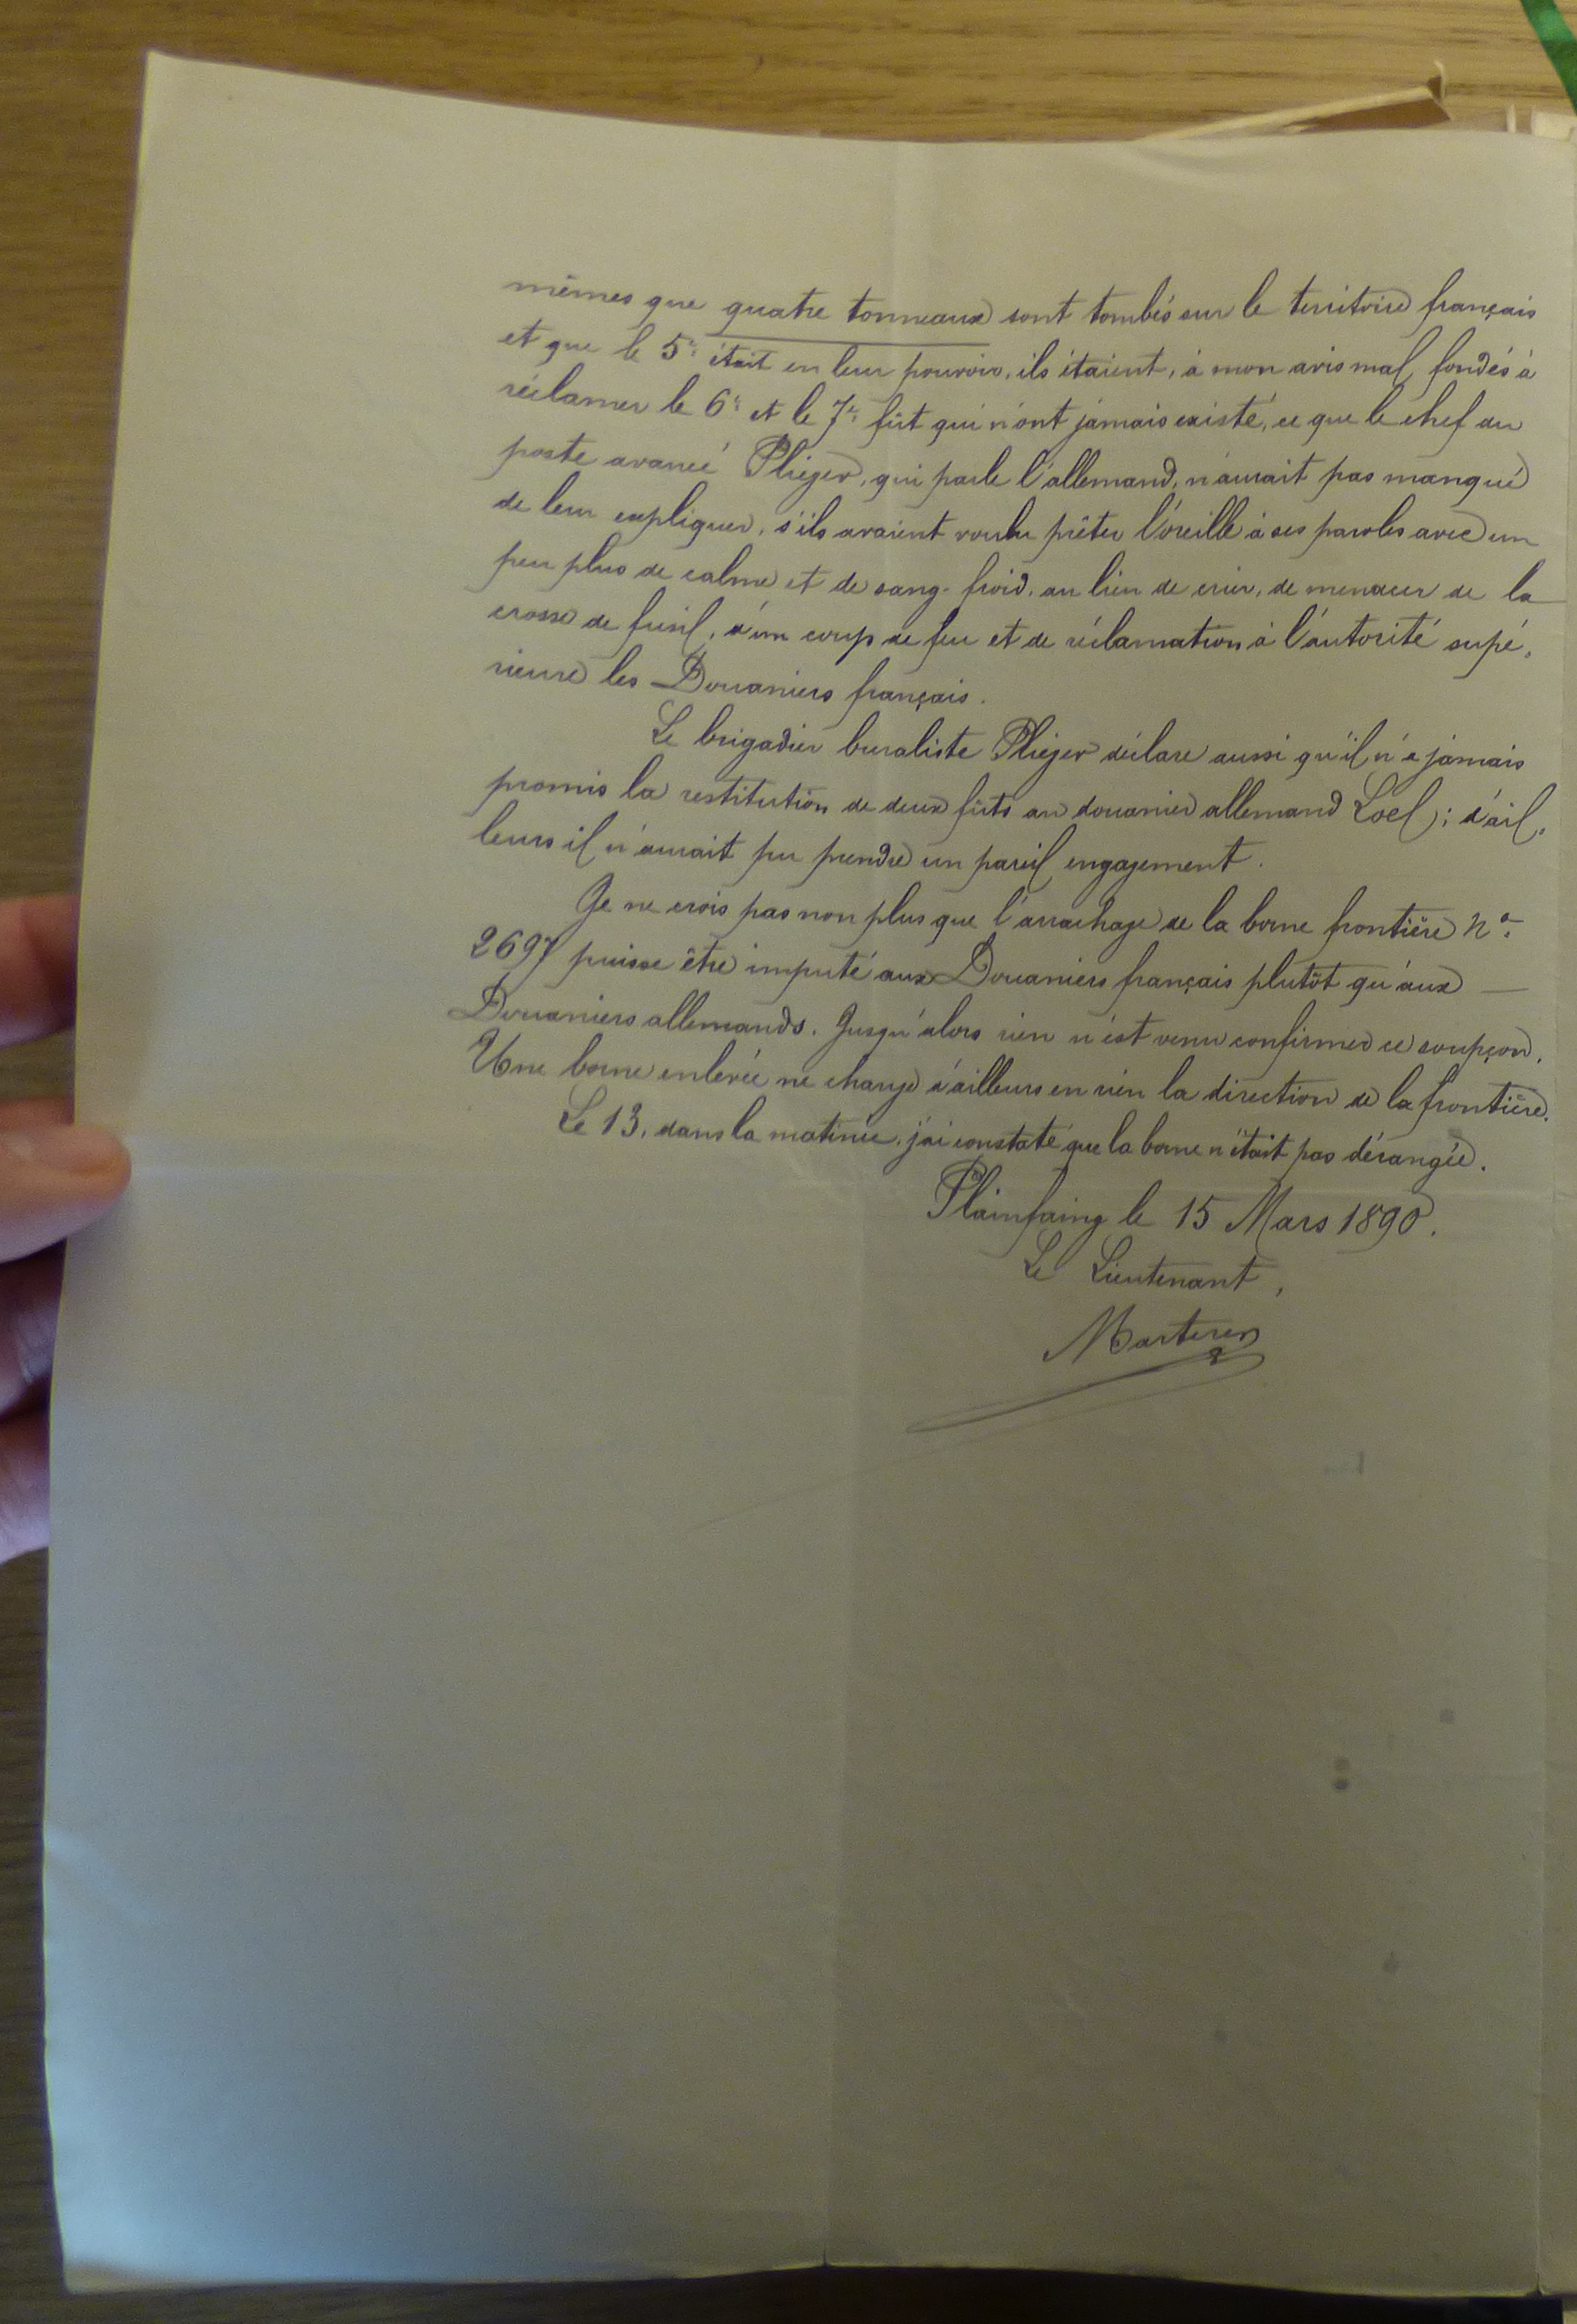 mêmes que quatre tonneaux sont tombés sur le territoire français
et que le 5e était en leur pouvoir, ils étaient, à mon avis mal fondés à
réclamer le 6e et le 7e fût qui n'ont jamais existé, ce que le chef du
poste avancé Plieger, qui parle l'allemand, n'aurait pas manqué
de leur expliquer, s'ils avaient voulu prêter l'oreille à ses paroles avec un
peu plus de calme et de sang-froid, au lieu de crier, de menacer de la
crosse de fusil, d'un coup de feu et de réclamation à l'autorité supé-
rieure les Douaniers français.
Le brigadier buraliste Plieger déclare aussi qu'il n'a jamais
promis la restitution de deux fûts au douanier allemand Loel; d'ail-
leurs il n'aurait pu prendre un pareil engagement.
Je ne crois pas non plus que l'arrachage de la borne frontière No
2697 puisse être imputé aux Douaniers français plutôt qu'aux
Douaniers allemands. Jusqu'alors rien n'est venu confirmer ce soupçon.
Une borne enlevée ne change d'ailleurs en rien la direction de la frontière.
Le 13, dans la matinée, j'ai constaté que la borne n'était pas dérangée.
Plainfaing le 15 Mars 1890.
Le Lieutenant,